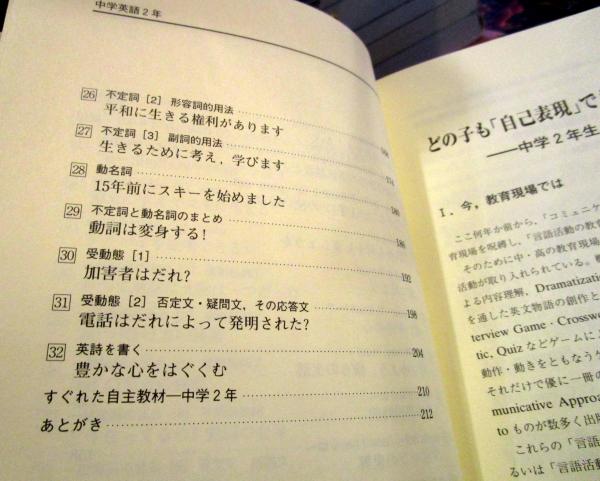 中学英語2年
26 不定詞［2］ 形容詞的用法
平和に生きる権利があります
27 不定詞［3］ 副詞的用法
生きるために考え，学びます
28 動名詞
15年前にスキーを始めました
29 不定詞と動名詞のまとめ
動詞は変身する！ 186
30 受動態［1］
加害者はだれ？ 192
31 受動態［2］ 否定文・疑問文，その応答文
電話はだれによって発明された？ 198
32 英詩を書く
豊かな心をはぐくむ 204
すぐれた自主教材―中学2年 210
あとがき 212
どの子も「自己表現」で
――中学2年生
Ⅰ．今，教育現場では
ここ何年か前から，「コミュニケ
育現場を呪縛し，「言語活動の教育
そのために中・高の教育現場
活動が取り入れられている。
よる内容理解，Dramatization
を通した英文物語の創作と
terview Game・Crossw
tic, Quizなどゲームに
動作・動きをともなうゲ
それだけで優に一冊の
municative Approa
toものが数多く出版
これらの「言語
るいは「言語活動